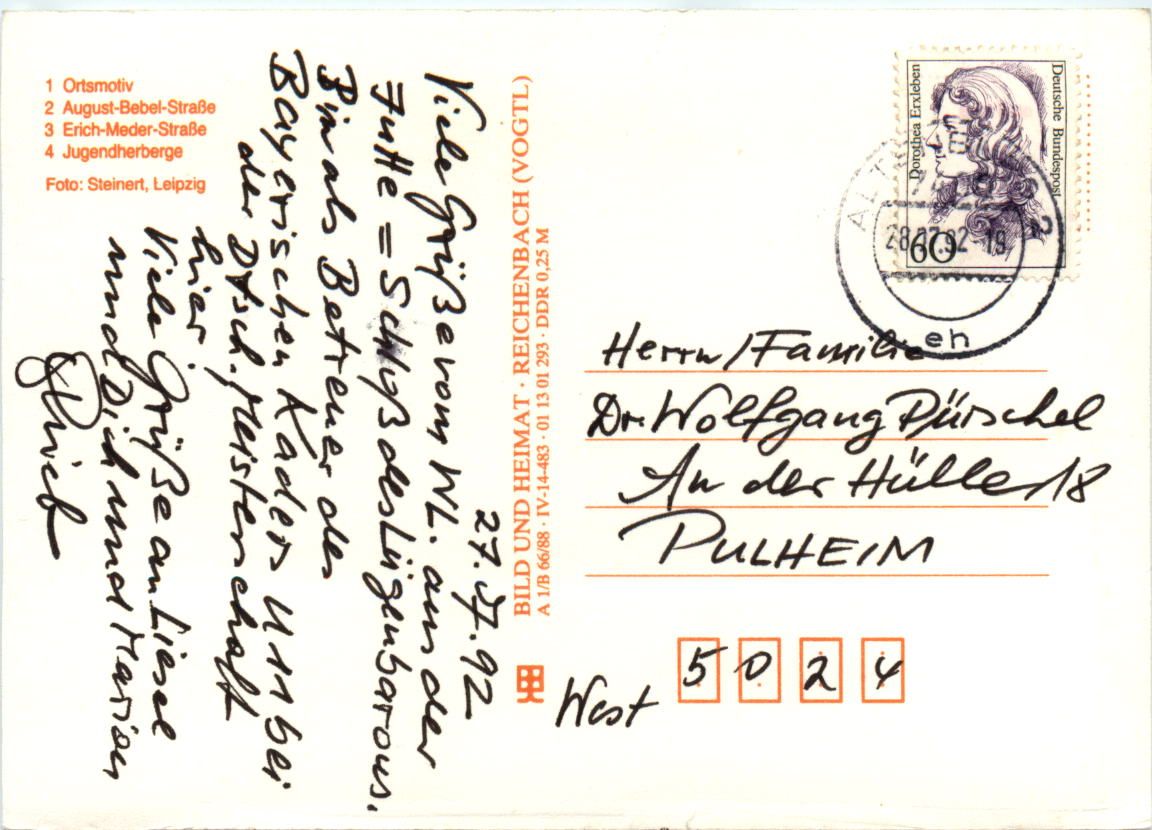 1 Ortsmotiv
2 August-Bebel-Straße
3 Erich-Meder-Straße
4 Jugendherberge
Foto: Steinert, Leipzig
27.VII.92
Viele Grüße vom WL. aus der
Jutte = Schloß des Lügenbarons.
Bin als Betreuer des
Bayerischen Kader U11 bei
der Dtsch. Meisterschaft
hier!
Viele Grüße an Liesel
und Dich und Marion
BILD UND HEIMAT · REICHENBACH (VOGTL)
A 1/B 66/88 · IV-14-483 · 01 13 01 293 · DDR 0,25 M
Dorothea Erxleben
Deutsche Bundespost
60
28.07.92-19
2
eh
Herrn / Familie
Dr. Wolfgang Pürschel
An der Hülle 18
PULHEIM
West
5024